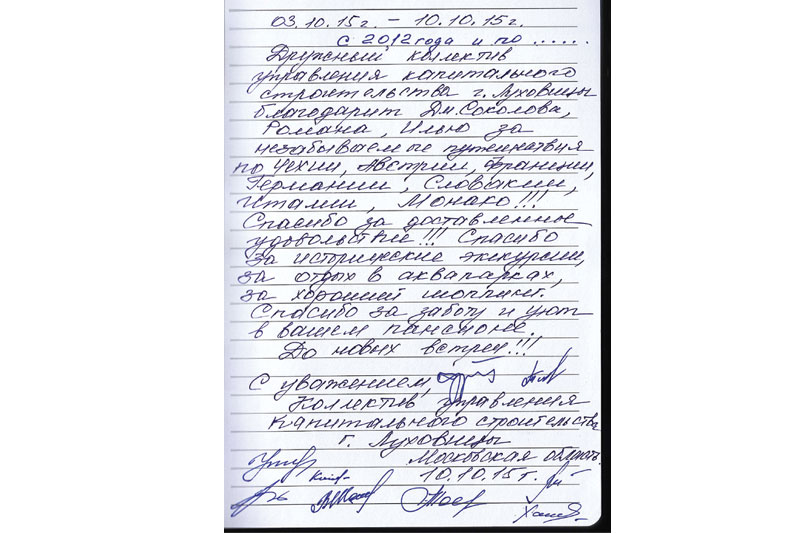 03.10.15г. – 10.10.15г.
с 2012 года и по ......
Дружный коллектив
управления капитального
строительства г. Луховицы
благодарит Дм. Соколова,
Романа, Илью за
незабываемые путешествия
по Чехии, Австрии, Франции,
Германии, Словакии,
Италии, Монако!!!
Спасибо за доставленное
удовольствие!!! Спасибо
за исторические экскурсии,
за отдых в аквапарках,
за хороший шоппинг.
Спасибо за заботу и уют
в вашем пансионе.
До новых встреч!!!
С уважением,
Коллектив управления
капитального строительства
г. Луховицы
Московская область
10.10.15г.